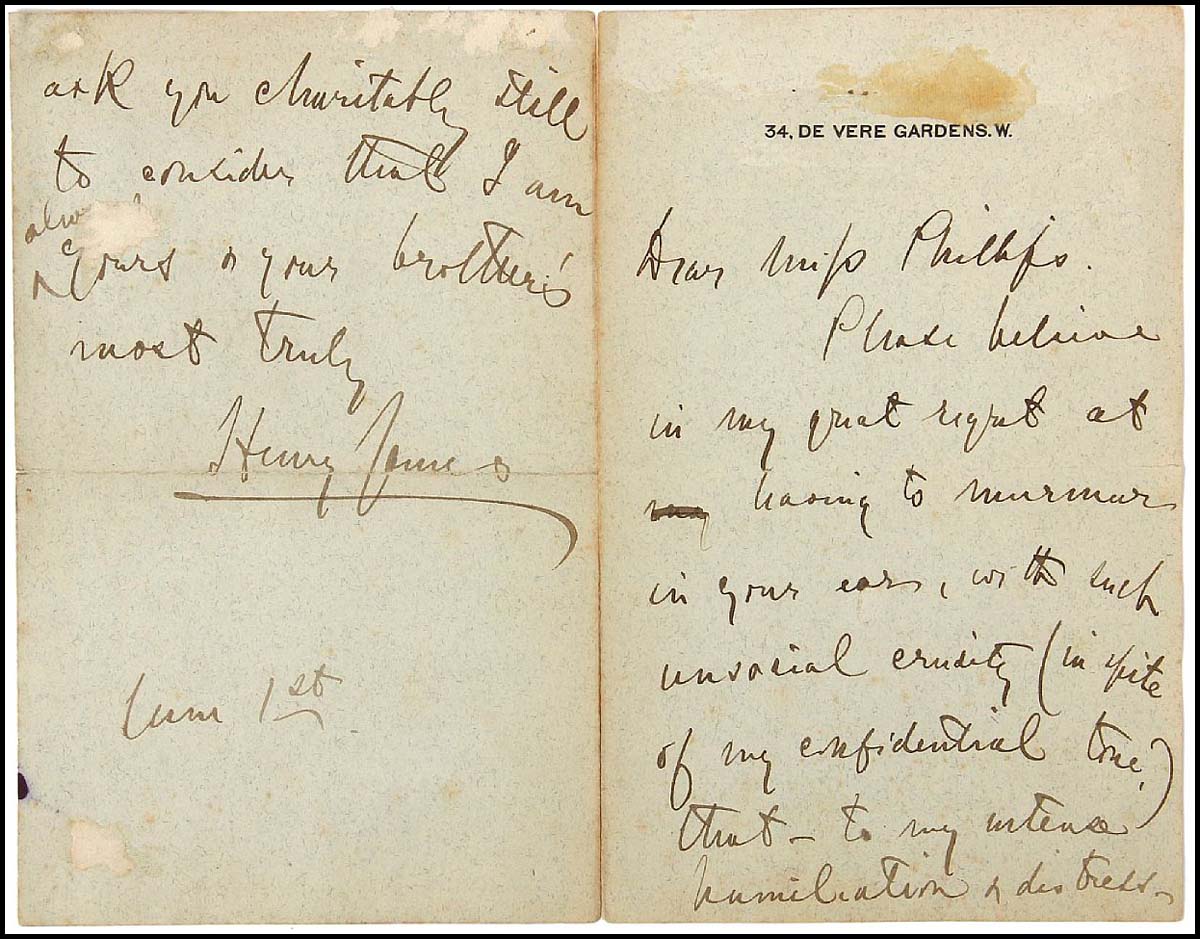 34, DE VERE GARDENS. W.
Dear Miss Phillips.
Please believe
in my great regret at
having to murmur
in your ear, with such
unsocial crudity (in spite
of my confidential tone)
that – to my intense
humiliation & distress –
ask you charitably still
to consider that I am
yours & your brother's
most truly
Henry James
June 1st